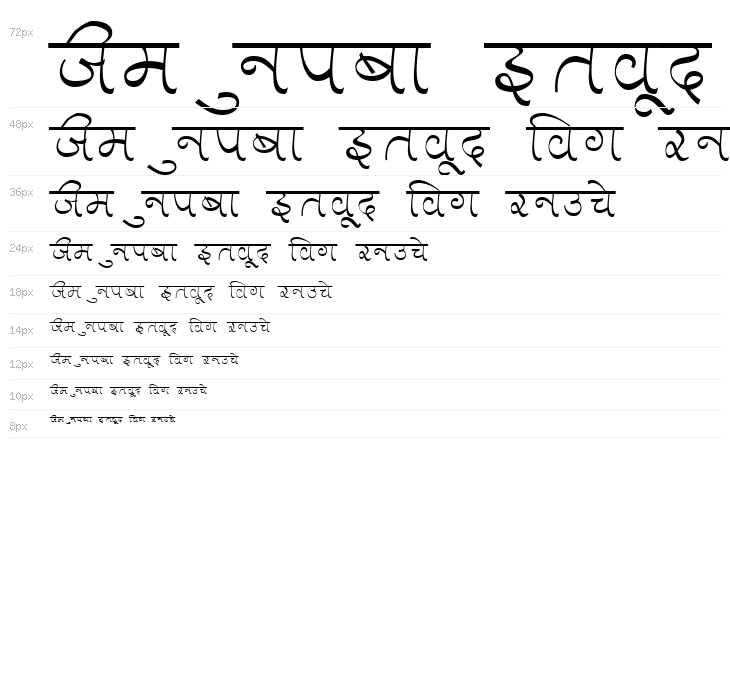 72px जिम ुनपबा इतवूद
48px जिम ुनपबा इतवूद विग रन
36px जिम ुनपबा इतवूद विग रनउचे
24px जिम ुनपबा इतवूद विग रनउचे
18px जिम ुनपबा इतवूद विग रनउचे
14px जिम ुनपबा इतवूद विग रनउचे
12px जिम ुनपबा इतवूद विग रनउचे
10px जिम ुनपबा इतवूद विग रनउचे
8px जिम ुनपबा इतवूद विग रनउचे